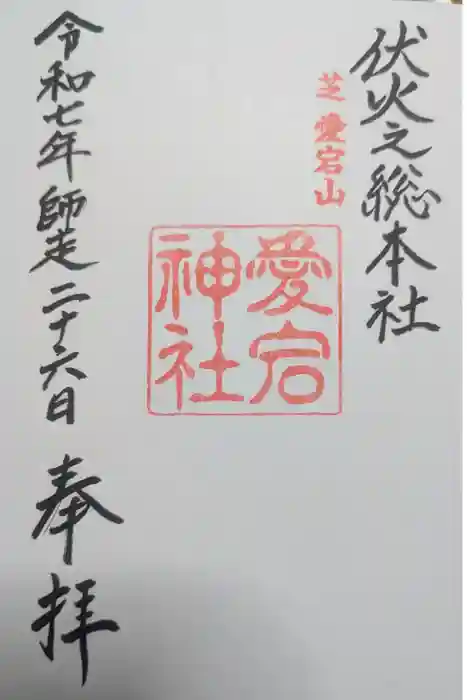 伏火之総本社
芝愛宕山
愛宕
神社
令和七年師走二十六日
奉拝